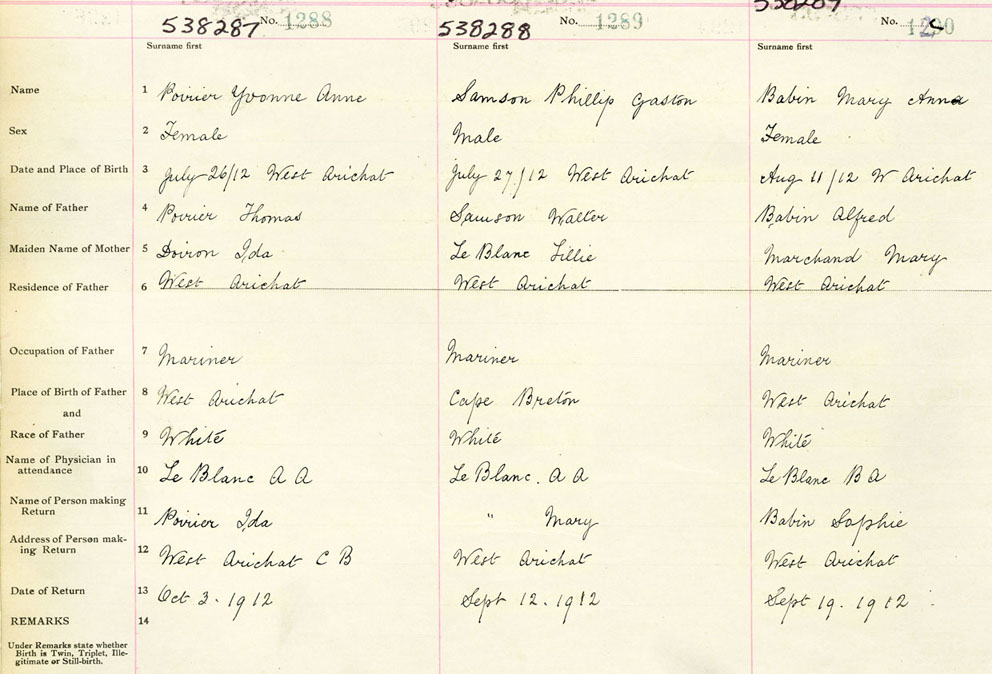 538287 No. 1288 538288 No. 1289 No.
Surname first Surname first Surname first
Name 1 Poirier Yvonne Anne Samson Phillip Gaston Babin Mary Anna
Sex 2 Female Male Female
Date and Place of Birth 3 July 26/12 West Arichat July 27/12 West Arichat Aug 11/12 W Arichat
Name of Father 4 Poirier Thomas Samson Walter Babin Alfred
Maiden Name of Mother 5 Doiron Ida Le Blanc Lillie Marchand Mary
Residence of Father 6 West Arichat West Arichat West Arichat
Occupation of Father 7 Mariner Mariner Mariner
Place of Birth of Father 8 West Arichat Cape Breton West Arichat
and
Race of Father 9 White White White
Name of Physician in
attendance 10 Le Blanc A A Le Blanc. A A Le Blanc B A
Name of Person making
Return 11 Poirier Ida " Mary Babin Sophie
Address of Person mak-
ing Return 12 West Arichat C B West Arichat West Arichat
Date of Return 13 Oct 3. 1912 Sept 12. 1912 Sept 19. 1912
REMARKS 14
Under Remarks state whether
Birth is Twin, Triplet, Ille-
gitimate or Still-birth.